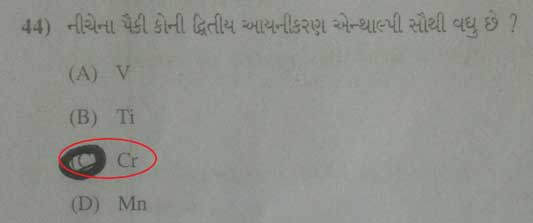 44) નીચેના પૈકી કોની દ્વિતીય આયનીકરણ એન્થાલ્પી સૌથી વધુ છે ?
(A) V
(B) Ti
(C) Cr
(D) Mn